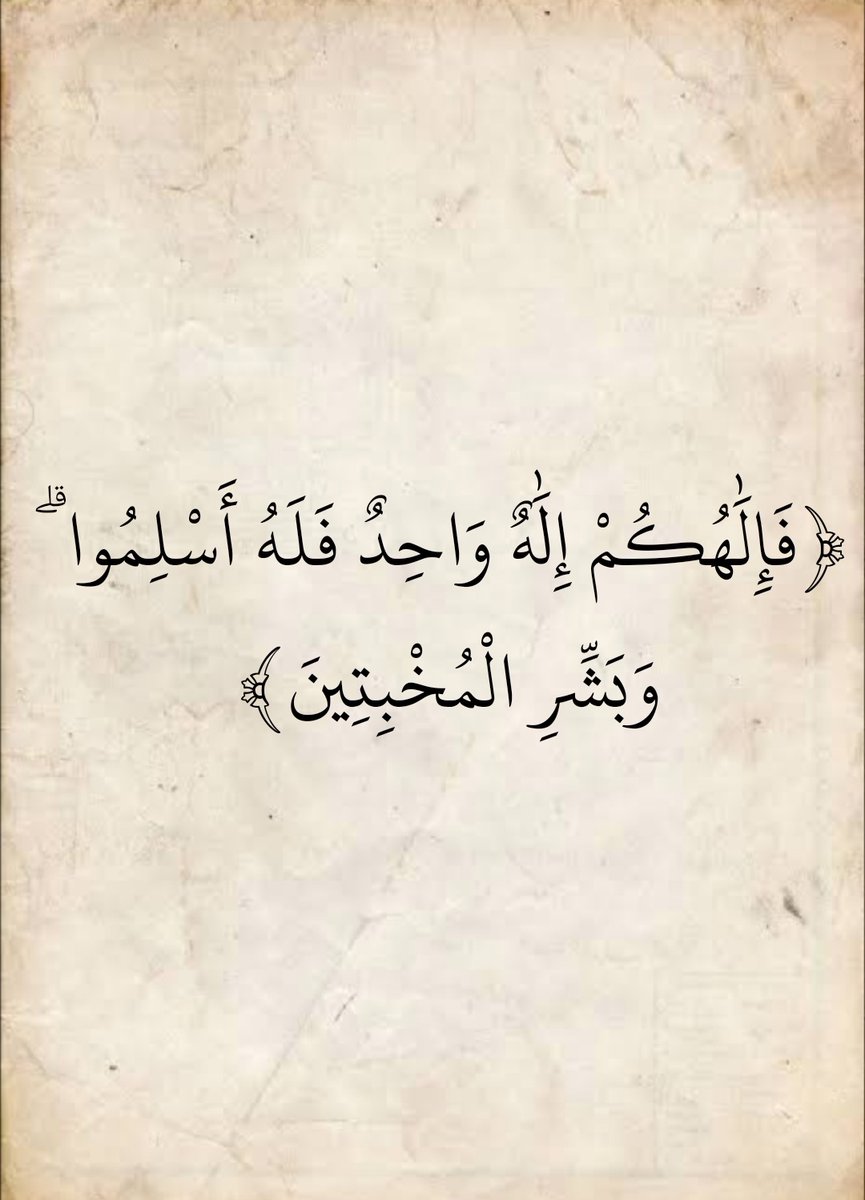 ﴿فَإِلَٰهُكُمْ إِلَٰهٌ وَاحِدٌ فَلَهُ أَسْلِمُوا ۗ
وَبَشِّرِ الْمُخْبِتِينَ﴾